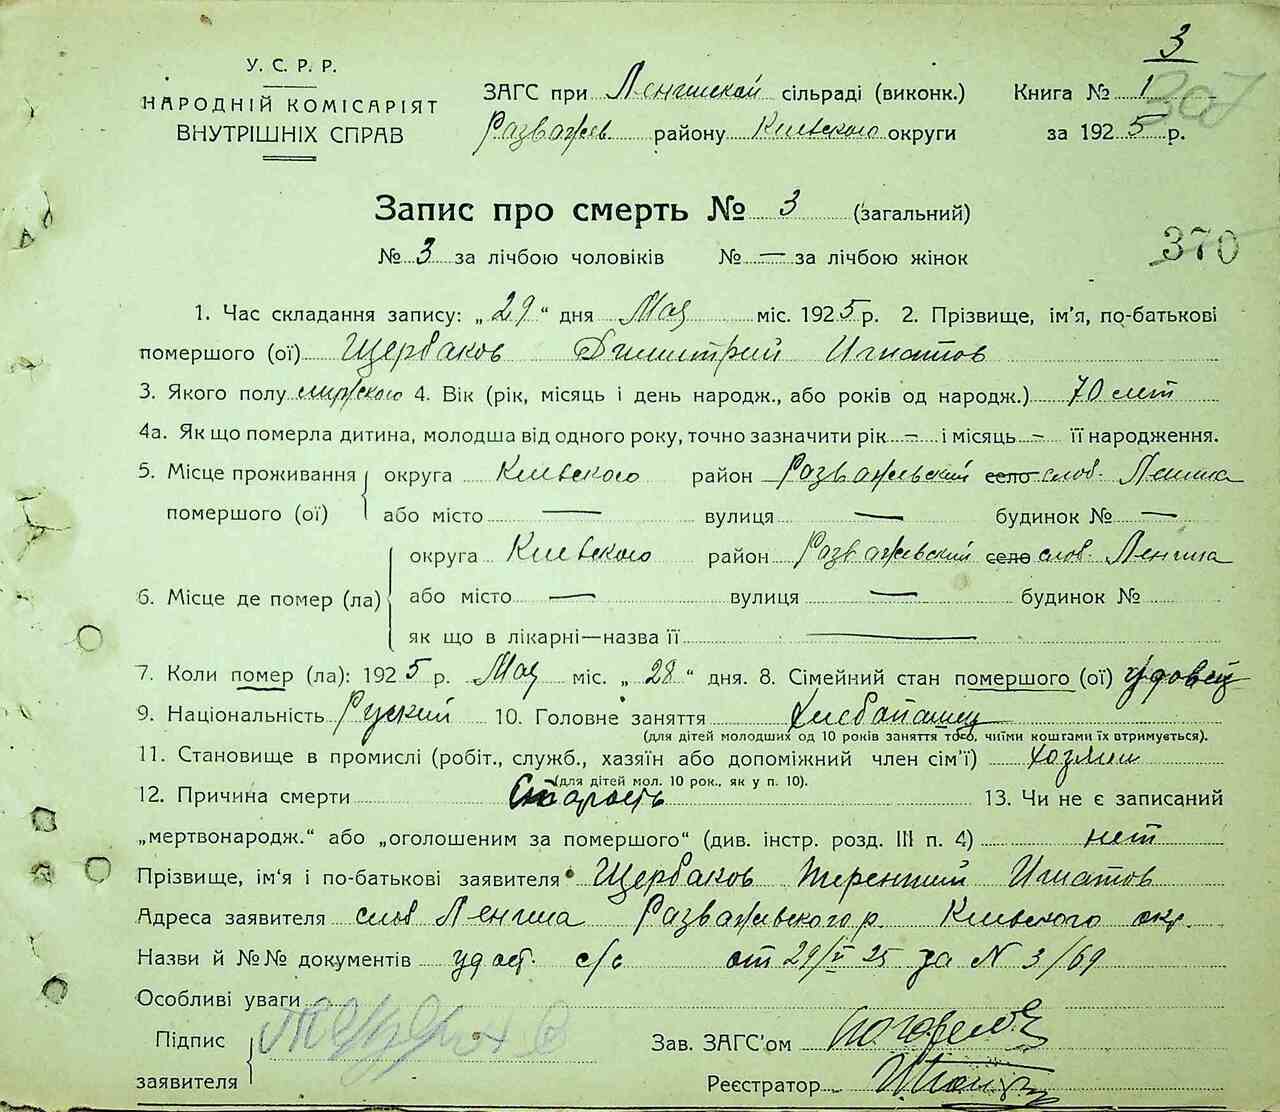 3
307
У. С. Р. Р.
НАРОДНІЙ КОМІСАРІЯТ
ВНУТРІШНІХ СПРАВ
ЗАГС при Ленинской сільраді (виконк.) Книга № 1
Разважев району Киевского округи за 1925 р.
Запис про смерть № 3 (загальний)
№ 3 за лічбою чоловіків № — за лічбою жінок
370
1. Час складання запису: „29“ дня Мая міс. 1925 р. 2. Прізвище, ім'я, по-батькові
помершого (ої) Щербаков Димитрий Игнатов
3. Якого полу мужского 4. Вік (рік, місяць і день народж., або років од народж.) 70 лет
4а. Як що померла дитина, молодша від одного року, точно зазначити рік — і місяць — її народження.
5. Місце проживання помершого (ої) округа Киевского район Разважевский село слоб. Ленина
або місто — вулиця — будинок № —
6. Місце де помер (ла) округа Киевского район Разважевский село слоб. Ленина
або місто — вулиця — будинок №
як що в лікарні—назва її —
7. Коли помер (ла): 1925 р. Мая міс. „28“ дня. 8. Сімейний стан помершого (ої) удовец
9. Національність Руский 10. Головне заняття Хлебопашец
(для дітей молодших од 10 років заняття того, чиїми коштами їх втримується).
11. Становище в промислі (робіт., служб., хазяїн або допоміжний член сім'ї) хозяин
(для дітей мол. 10 рок., як у п. 10).
12. Причина смерти Старость 13. Чи не є записаний
„мертвонародж.“ або „оголошеним за помершого“ (див. інстр. розд. III п. 4) нет
Прізвище, ім'я і по-батькові заявителя Щербаков Терентий Игнатов
Адреса заявителя слоб Ленина Разважевского р. Киевского окр.
Назви й №№ документів удост. с/с от 29/V 25 за N 3/69
Особливі уваги
Підпис заявителя
Зав. ЗАГС'ом
Реєстратор